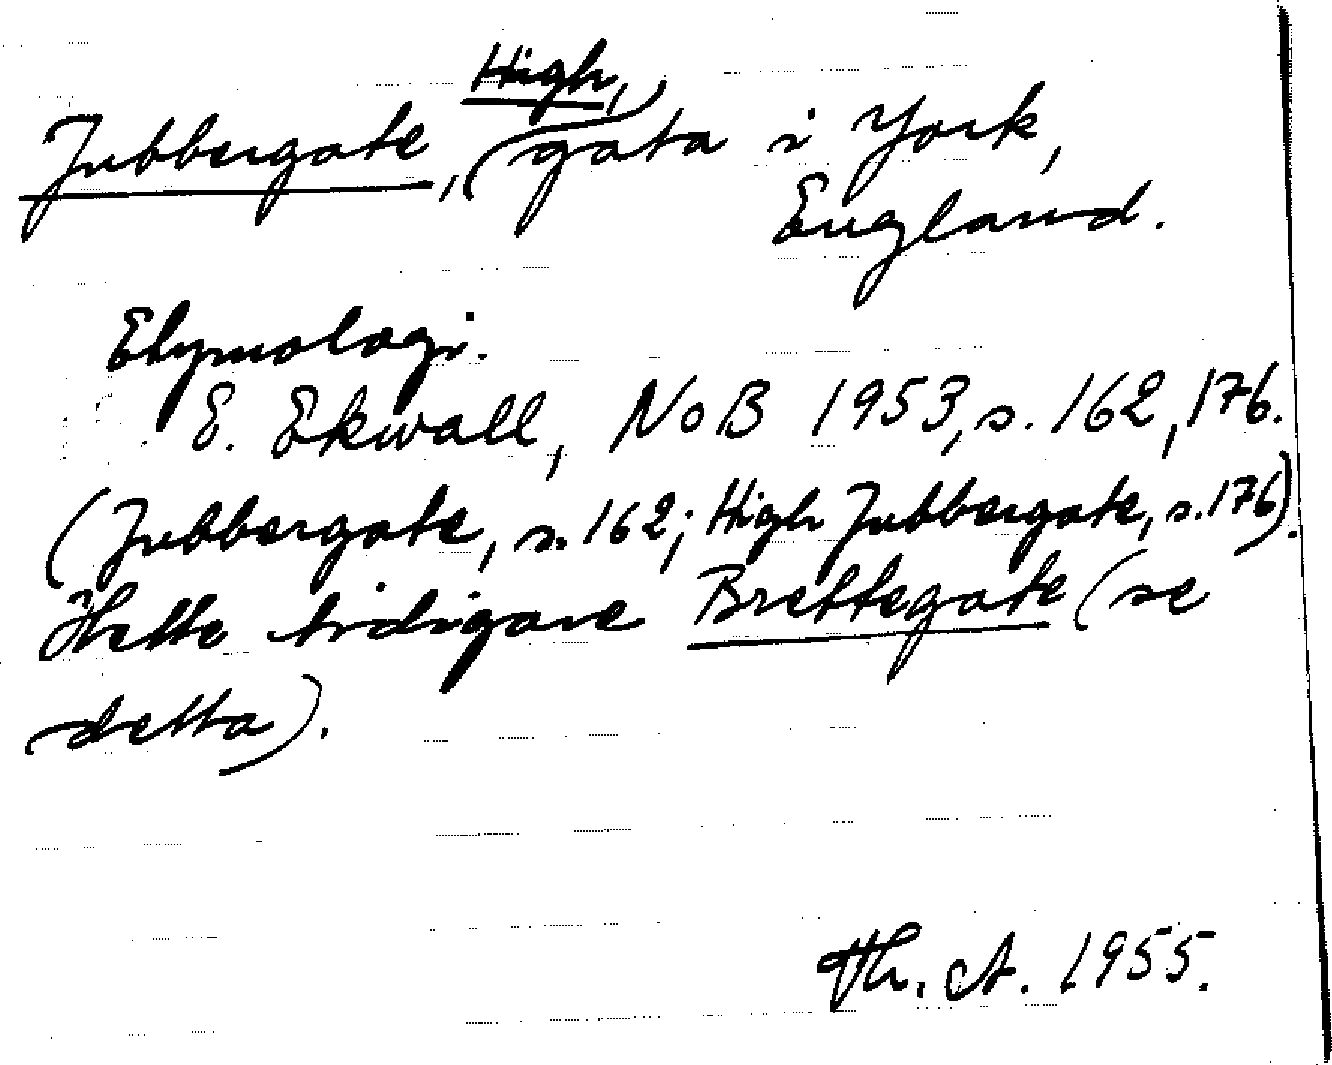 Jubbergate, High, gata i York,
England.
Etymologi.
E. Ekwall, NoB 1953, s. 162, 176.
(Jubbergate, s. 162; High Jubbergate, s. 176).
Hette tidigare Brettegate (se
detta).
Th. A. 1955.